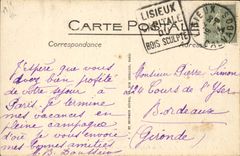 CARTE POSTALE
LISIEUX
BOIS SCULPTÉ
LISIEUX
Correspondance
J'espère que vous
avez bien profité
de votre séjour à
Paris. Je termine
mes vacances en
pleine campagne
d'où je vous envoie
mes bonnes amitiés
Monsieur Pierre Simone
220 Cours de l'Yser
Bordeaux
Gironde